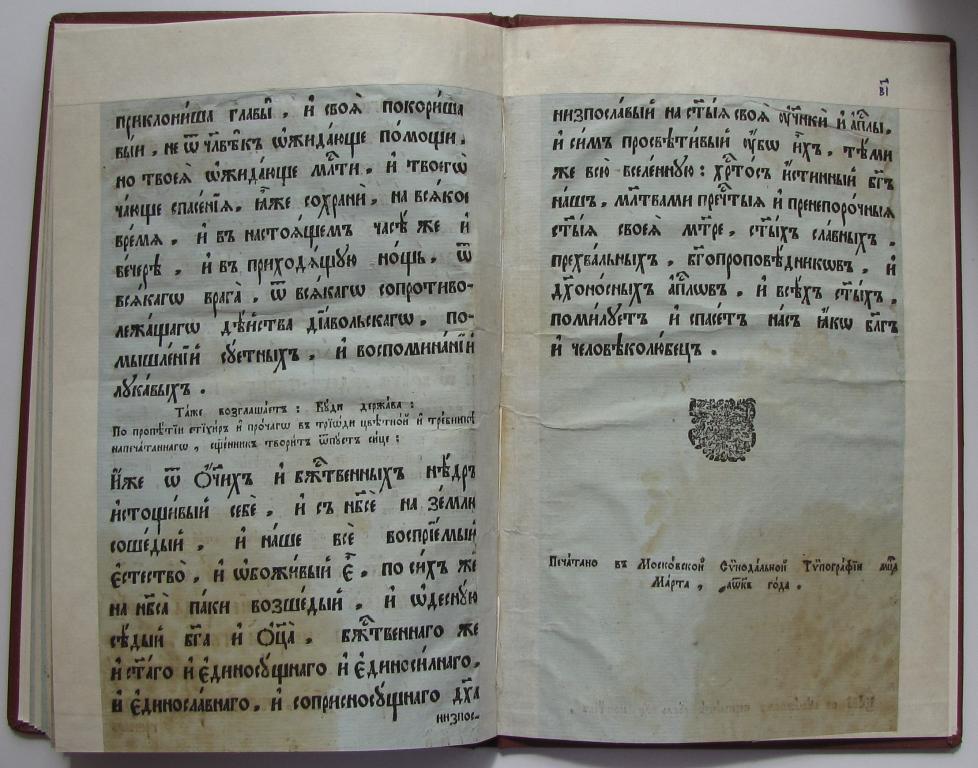 приклони́ша главы̀ , и҆ своѧ̀ покори́ша
выи , не ѿ человѣ̑къ ѡ҆жида́юще по́мощи ,
но твоеѧ̀ ѡ҆жида́юще млⷭ҇ти , и҆ твоегѡ̀
ча́юще спасе́нїѧ , ꙗ҆̀же сохранѝ , на всѧ́кое
вре́мѧ , и҆ въ настоѧ́щемъ часѣ̀ же и҆
ве́черѣ , и҆ въ приходѧ́щую но́щь , ѿ
всѧ́кагѡ врага̀ , ѿ всѧ́кагѡ сопроти́во-
лежа́щагѡ дѣ́йства дїа́вольскагѡ , по-
мышле́нїй су́етныхъ , и҆ воспомина́нїй
лука́выхъ .
Та́же возглаша́етъ : Бу́ди держа́ва :
По пропѣ́тїи стїхи́ръ и҆ про́чагѡ въ трїѡ́ди цвѣ́тной и҆ тре́бникѣ
напеча́таннагѡ , сщ҃е́нникъ твори́тъ ѿпу́стъ си́це :
И҆́же ѿ Ѻ҆́ч҃ихъ и҆ бж҃е́ственныхъ нѣ́дръ
и҆стощи́вый себѐ , и҆ съ нб҃сѐ на зе́млю
соше́дый , и҆ на́ше всѐ воспрїе́мый
є҆стество̀ , и҆ ѡ҆божи́вый є҆̀ , по си́хъ же
на нб҃са̀ па́ки возше́дый , и҆ ѡ҆десну́ю
сѣ́дый бг҃а и҆ Ѻ҆ц҃а̀ , бж҃е́ственнаго же
и҆ ст҃а́го и҆ є҆диносу́щнаго и҆ є҆диноси́лнаго ,
и҆ є҆диносла́внаго , и҆ соприсносу́щнаго дх҃а
низпос-
в҃і
низпосла́вый на ст҃ы́ѧ своѧ̀ ᲂу҆чн҃ки̑ и҆ а҆пⷭ҇лы ,
и҆ си́мъ просвѣти́вый ᲂу҆́бѡ и҆̀хъ , тѣ́ми
же всю̀ вселе́нную : хрⷭ҇то́съ и҆́стинный бг҃ъ
на́шъ , мл҃твами пречⷭ҇тыѧ и҆ пренепоро́чныѧ
ст҃ы́ѧ своеѧ̀ мт҃ре , ст҃ы́хъ сла́вныхъ ,
прехва́льныхъ , бг҃опроповѣ́дникѡвъ , и҆
дх҃оно́сныхъ а҆пⷭ҇лѡвъ , и҆ всѣ́хъ ст҃ы́хъ ,
поми́луетъ и҆ спасе́тъ на́съ ꙗ҆́кѡ бл҃гъ
и҆ человѣколю́бецъ .
Печа́тано въ Моско́вской Сѷнода́льной Тѷпогра́фїи мцⷭ҇а
Ма́рта , ҂аѿк҃в го́да .